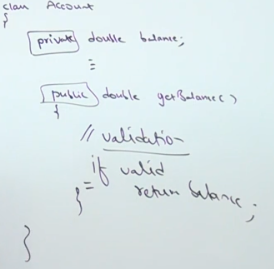 class Account
{
private double balance;
=
public double getBalance()
{
// validation
if valid
=
return balance;
}
}